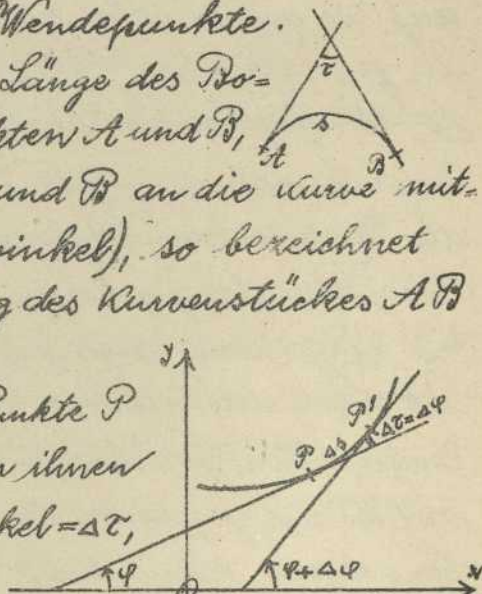 Wendepunkte.
Länge des Bo=
kten A und B,
und B an die Kurve mit=
winkel), so bezeichnet
g des Kurvenstückes AB
unkte P
n ihnen
kel = Δτ,
τ
s
A
B
y
P'
Δτ=Δφ
P Δs
φ
φ+Δφ
x
O